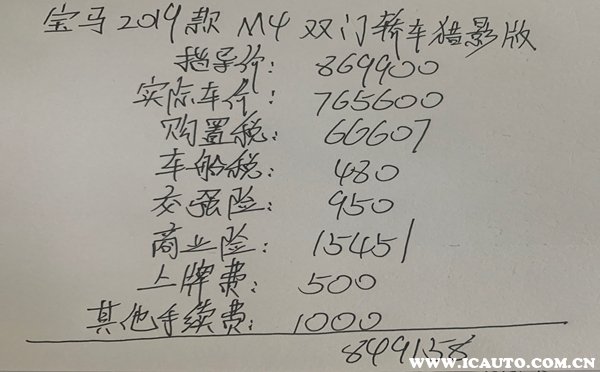 宝马2019款 M4 双门轿车猎影版
指导价: 869900
实际车价: 765600
购置税: 66607
车船税: 480
交强险: 950
商业险: 15451
上牌费: 500
其他手续费: 1000
849158
www.icauto.com.cn